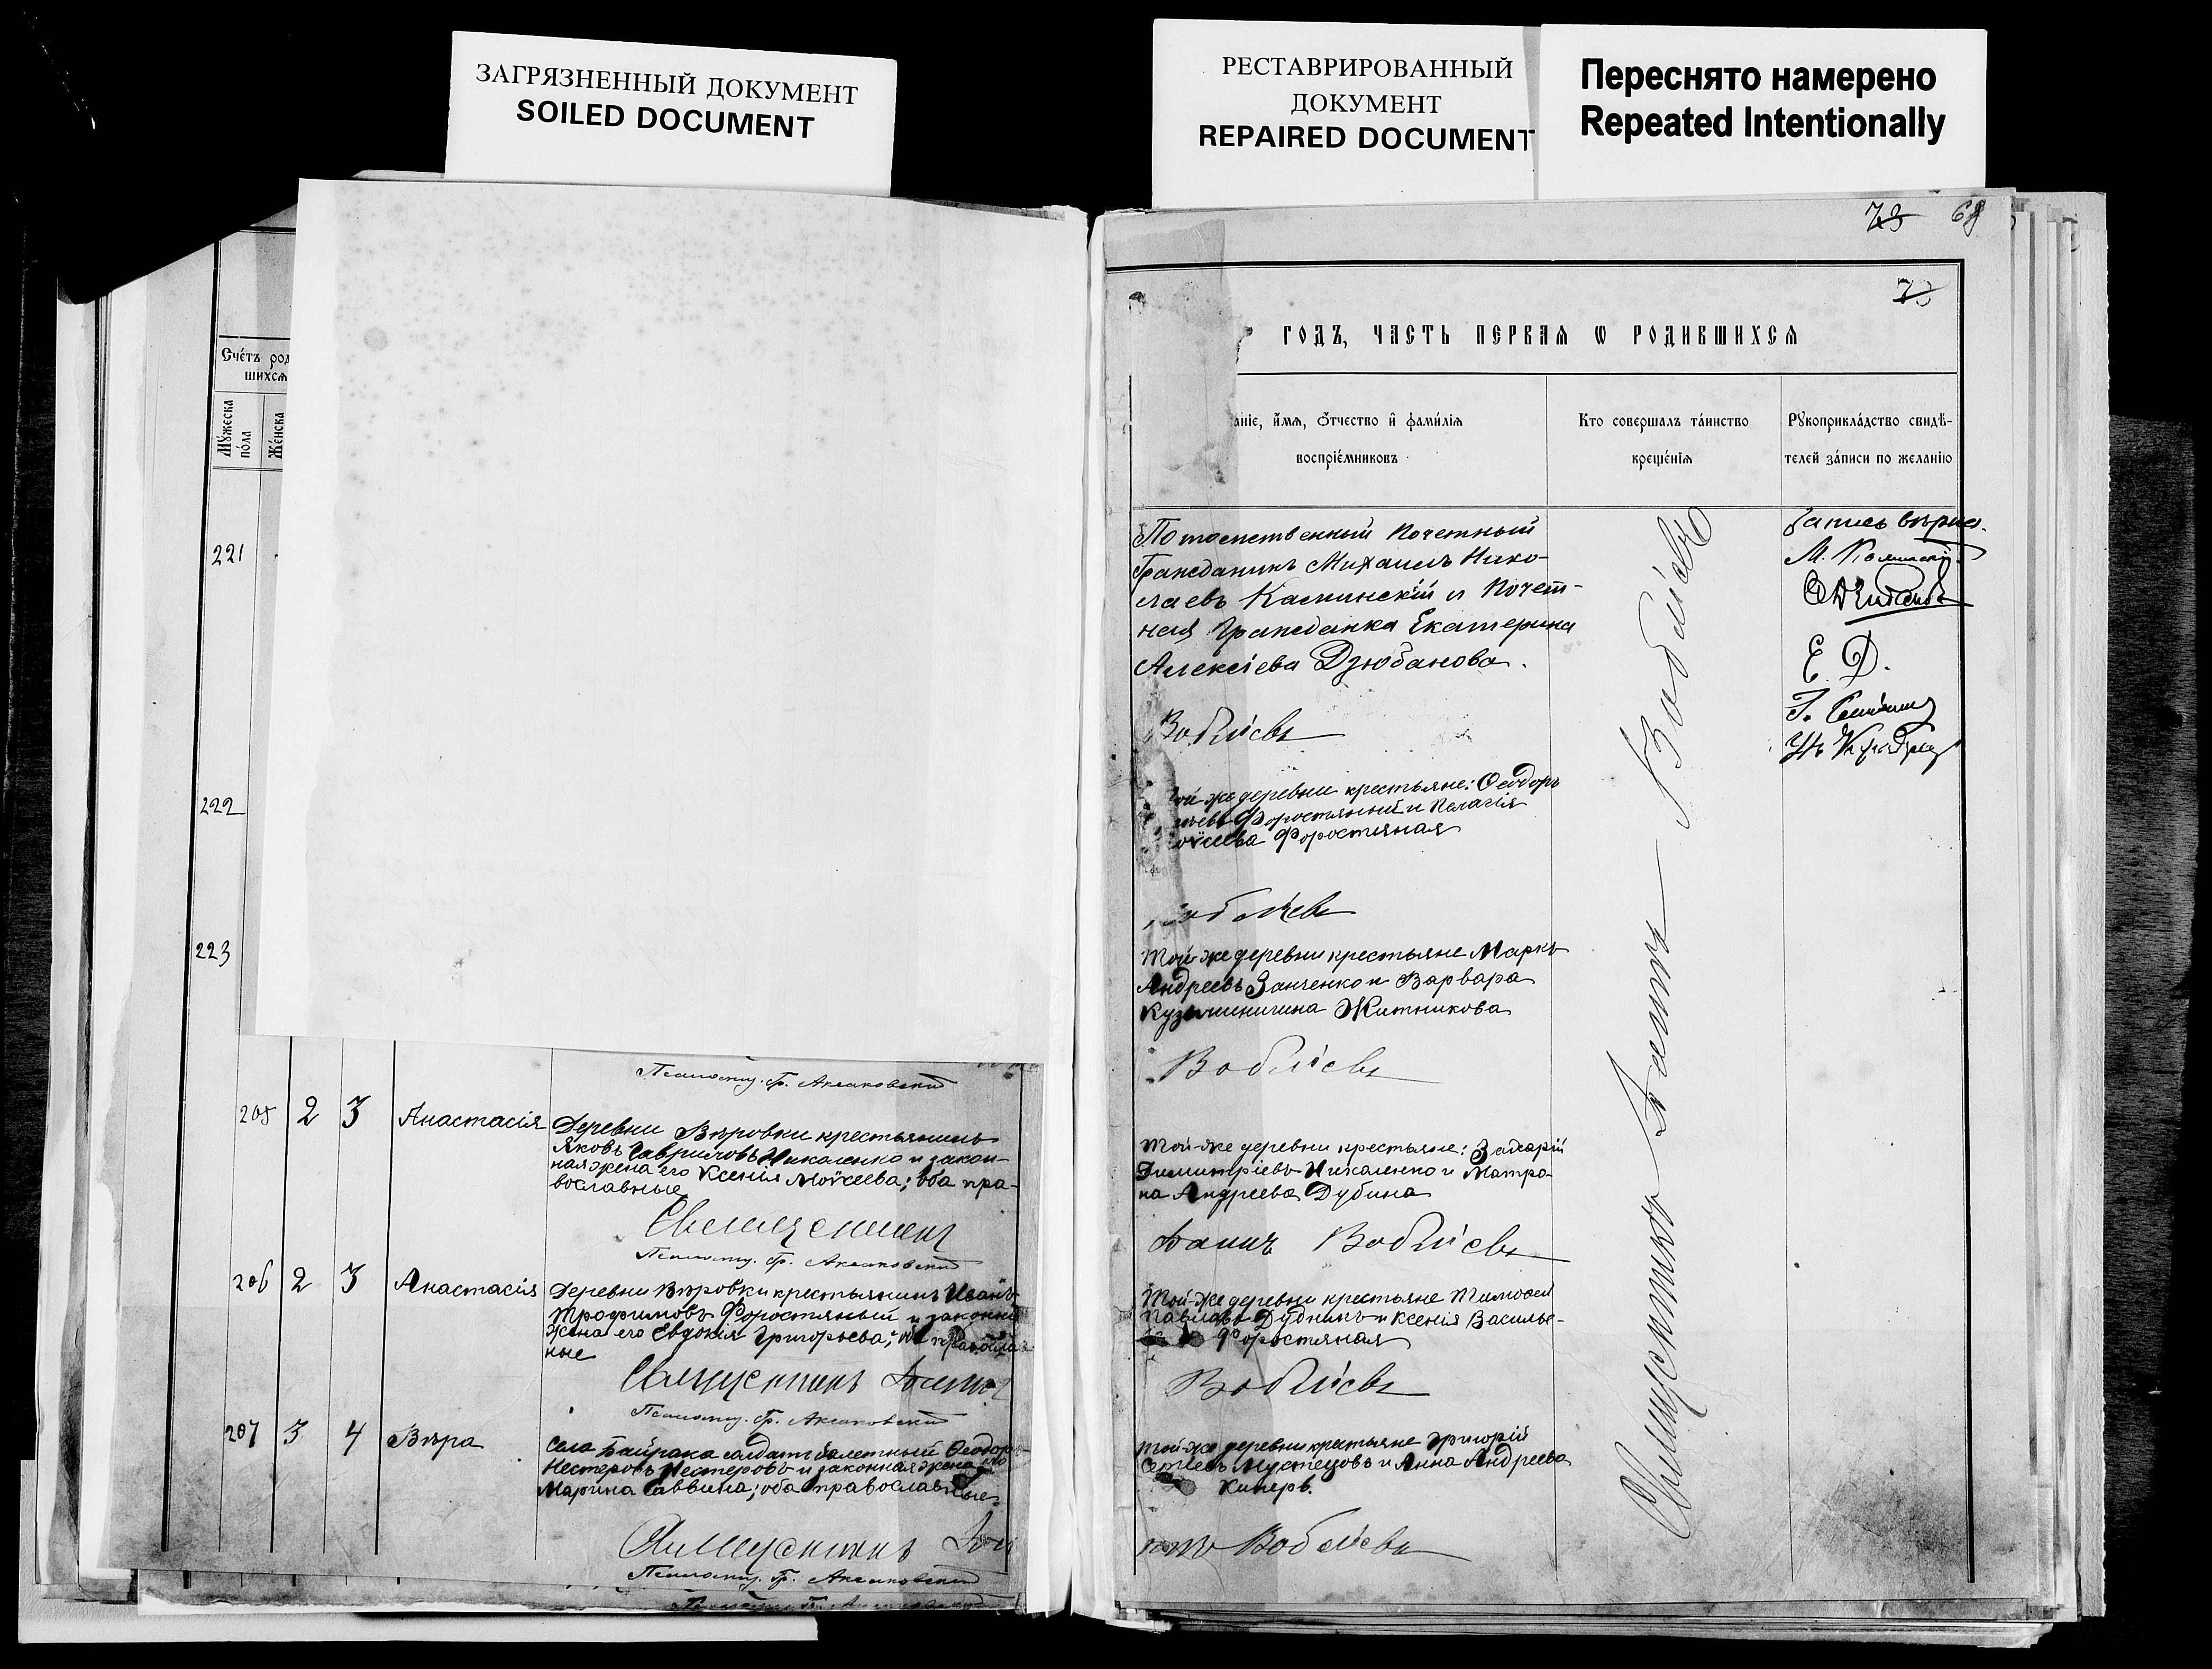 ЗАГРЯЗНЕННЫЙ ДОКУМЕНТ
SOILED DOCUMENT
РЕСТАВРИРОВАННЫЙ
ДОКУМЕНТ
REPAIRED DOCUMENT
Переснято намерено
Repeated Intentionally
Счетъ род
шихсѧ
Мужеска
пола
Женска
221
222
223
Псаломщ. Гр. Аксаковскій
205 2 3 Анастасія
Деревни Вѣровки крестьянинъ
Яковъ Гавриловъ Николенко и закон-
ная жена его Ксенія Моѵсеева; оба пра-
вославные
Священникъ
Псаломщ. Гр. Аксаковскій
206 2 3 Анастасія
Деревни Вѣровки крестьянинъ Иванъ
Трофимовъ Форостяный и законна
жена его Евдокія Григорьева;
ные
Священникъ
Псаломщ. Гр. Аксаковскій
207 3 4 Вѣра
Села Байрака солдатъ билетный Ѳеодоръ
Нестеровъ Нестеровъ и законная жена его
Марина Саввина; оба православные
Священникъ
Псаломщ. Гр. Аксаковскій
73 68
73
ГОДЪ, ЧАСТЬ ПЕРВАѦ Ѡ РОДИВШИХСѦ
аніе, имѧ, отчество и фамиліѧ
воспріемниковъ
Кто совершалъ таинство
крещеніѧ
Рукоприкладство свидѣ-
телей записи по желанію
Потомственный Почетный
Гражданинъ Михаилъ Нико-
лаевъ Каминскій и Почет-
ная Гражданка Екатерина
Алексіева Дзюбанова.
Воблiевъ
Запись вѣрна.
М. Каминскій
Е. Д.
той же деревни крестьяне: Ѳеодоръ
Форостяный и Пелагія
Моѵсеева Форостяная
Воблiевъ
Той-же деревни крестьяне Маркъ
Андреевъ Занченко и Варвара
Кузьминична Житникова
Воблiевъ
Той-же деревни крестьяне: Захарій
Димитріевъ Николенко и Матро-
на Андреева Дубина
Воблiевъ
Той-же деревни крестьяне Тимоѳей
Павловъ Дубина и Ксенія Василье-
Форостяная
Воблiевъ
Той-же деревни крестьяне Григорій
Сергіевъ и Анна Андреева
Воблiевъ
Священникъ Воблiевъ